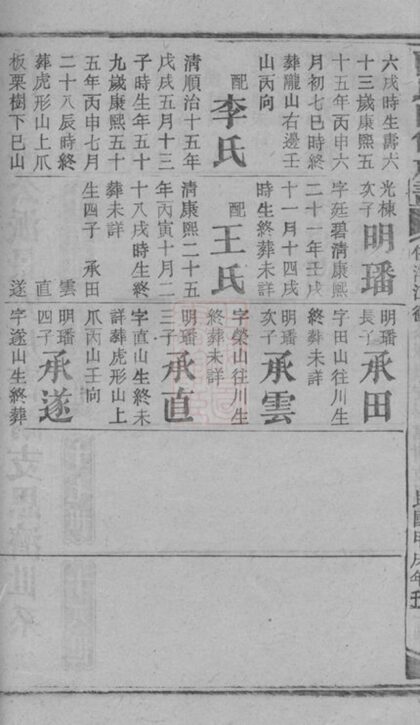 六戌時生壽六
十三歲康熙五
十五年丙申六
月初七巳時終
葬隴山右邊壬
山丙向
配 李氏
清順治十五年
戊戌五月十三
子時生年五十
九歲康熙五十
五年丙申七月
二十八辰時終
葬虎形山上爪
板栗樹下巳山
光棟次子 明璠
字廷碧清康熙
二十一年壬戌
十一月十四戌
時生終葬未詳
配 王氏
清康熙二十五
年丙寅十月二
十八戌時生終
葬未詳
生四子 承田
雲
直
遂
明璠長子 承田
字田山往川生
終葬未詳
明璠次子 承雲
字榮山往川生
終葬未詳
明璠三子 承直
字直山生終未
詳葬虎形山上
爪丙山壬向
明璠四子 承遂
字遂山生終葬